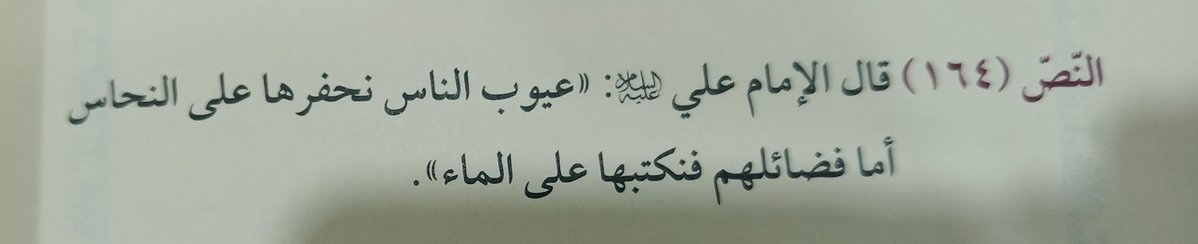 النّصّ (١٦٤) قال الإمام علي عليه السلام: «عيوب الناس نحفرها على النحاس
أما فضائلهم فنكتبها على الماء».